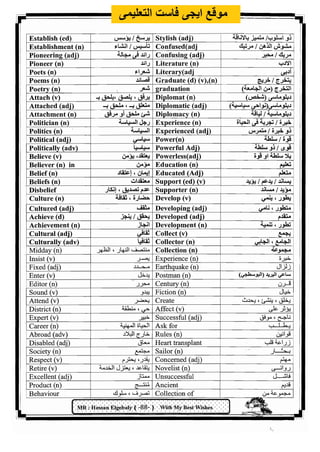 موقع ايجى فاست التعليمى
Establish (ed) يرسخ / يؤسس Stylish (adj) ذو اسلوب/ متميز بالاناقة
Establishment (n) تأسيس / انشاء Confused/adj مشوش الذهن / مرتبك
Pioneering (adj) رائد فى مجالة Confusing (adj) مربك / محير
Pioneer (n) رائد Literature (n) الادب
Poets (n) شعراء Literary/adj أدبى
Poems (n) قصائد Graduate (d) (v),(n) يتخرج / خريج
Poetry (n) شعر graduation التخرج (من الجامعة)
Attach (v) يرفق ، يلصق ،يلحق بـ Diplomat (n) دبلوماسي (شخص)
Attached (adj) متعلق بـ ، ملحق بـ Diplomatic (adj) دبلوماسي(نواحى سياسية)
Attachment (n) شئ ملحق أو مرفق Diplomacy (n) دبلوماسية / لباقة
Politician (n) رجل السياسة Experience (n) خبرة / تجربة فى الحياة
Politics (n) السياسة Experienced (adj) ذو خبرة / متمرس
Political (adj) سياسي Power(n) قوة / سلطة
Politically (adv) سياسياً Powerful Adj) قوى / ذو سلطة
Believe (v) يعتقد، يؤمن Powerless(adj) بلا سلطة او قوة
Believer (n) in مؤمن Education (n) تعليم
Belief (n) إيمان ، إعتقاد Educated (Adj) متعلم
Beliefs (n) معتقدات Support (ed) (v) يساند / يدعم / يؤيد
Disbelief عدم تصديق ، إنكار Supporter (n) مساند / مؤيد
Culture (n) حضارة ، ثقافة Develop (v) يطور ، ينمى
Cultured (adj) مثقف Developing (adj) متطور ، نامي
Achieve (d) يحقق / ينجز Developed (adj) متقدم
Achievement (n) الانجاز Development (n) تطور ، تنمية
Cultural (adj) ثقافي Collect (v) يجمع
Culturally (adv) ثقافياً Collector (n) الجامع ، الجابي
Midday (n) منتصف النهار ، الظهر Collection (n) مجموعة
Insist (v) يصر Experience (n) خبرة
Fixed (adj) محدد Earthquake (n) زلزال
Enter (v) يدخل Postman (n) ساعي البريد (البوسطجي)
Editor (n) محرر Century (n) قرن
Sound (v) يبدو Fiction (n) خيال
Attend (v) يحضر Create يخلق ، ينشئ ، يحدث
District (n) حى ، منطقة Affect (v) يؤثر على
Expert (v) خبير Successful (adj) ناجح ، موفق
Career (n) الحياة المهنية Ask for يطلب
Abroad (adv) خارج البلاد Rules (n) قوانين
Disabled (adj) معاق Heart transplant زراعة قلب
Society (n) مجتمع Sailor (n) بحار
Respect (v) يقدر، يحترم Concerned (adj) مهتم
Retire (v) يتقاعد ، يعتزل الخدمة Novelist (n) روائى
Excellent (adj) ممتاز Unsuccessful فاشل
Product (n) مُنتَج Ancient قديم
Behaviour تصرف ، سلوك Collection of مجموعة من
MR : Hassan Elgebaly ( -88- ) With My Best Wishes